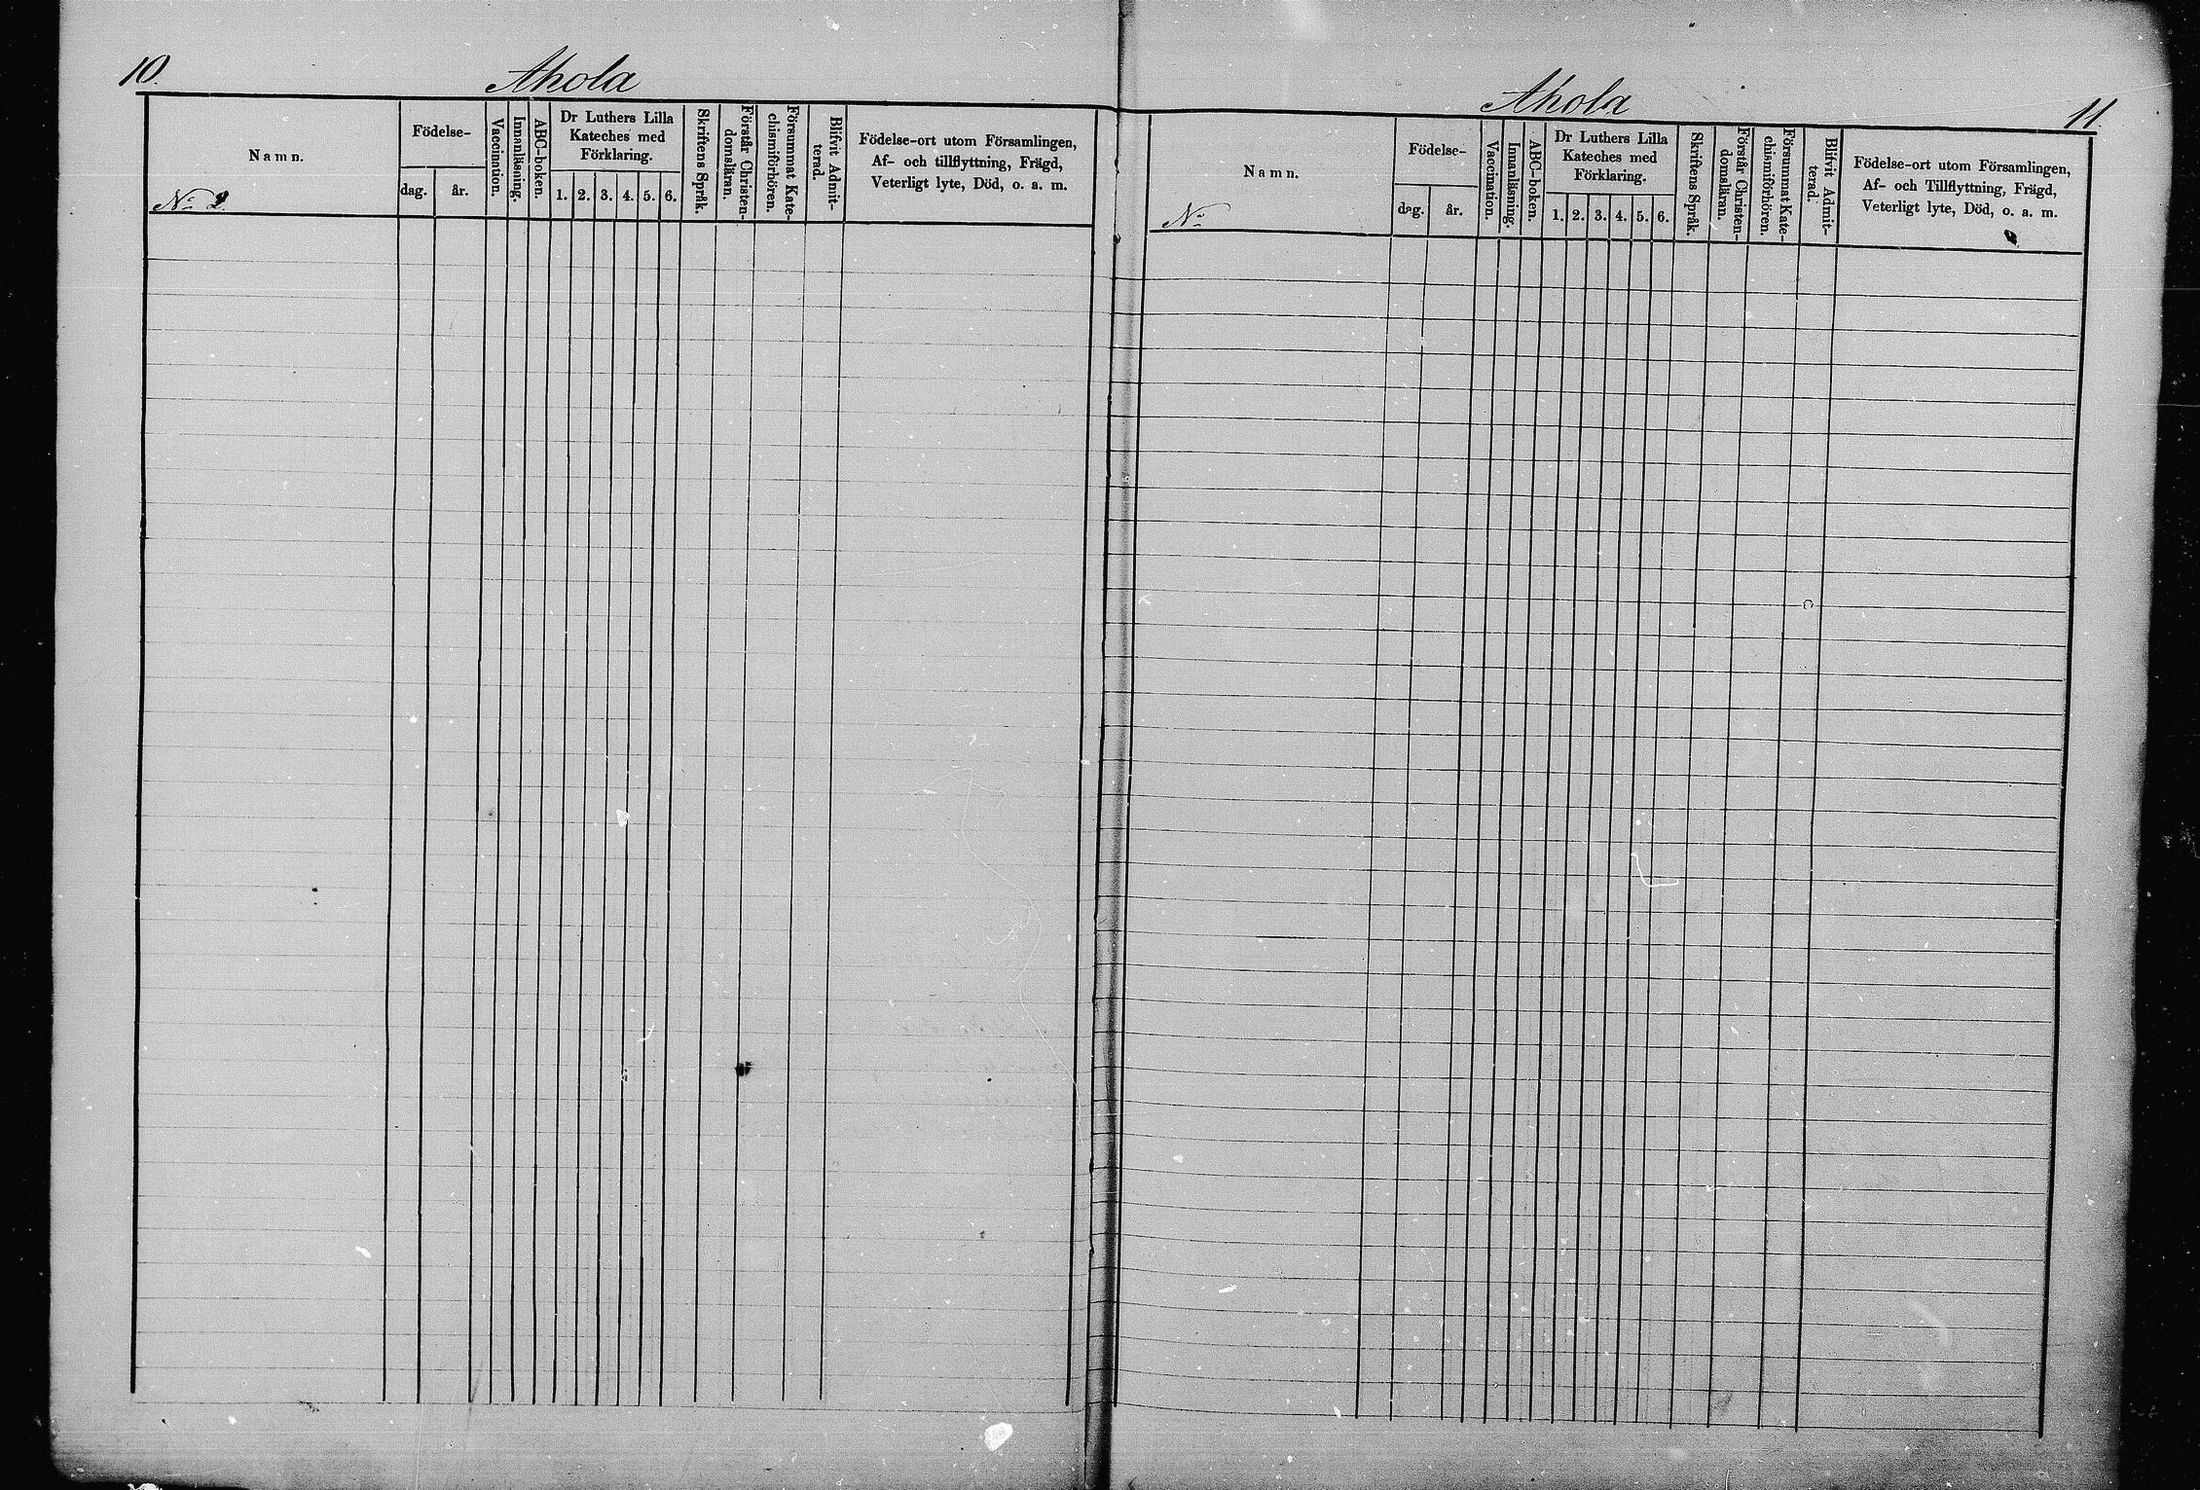 10.
Ahola
Namn.
Nº 2.
Födelse-
dag.
år.
Vaccination.
Innanläsning.
ABC-boken.
Dr Luthers Lilla
Kateches med
Förklaring.
1. 2. 3. 4. 5. 6.
Skriftens Språk.
Förstår Christen-
domsläran.
Försummat Kate-
chismiförhören.
Blifvit Admit-
terad.
Födelse-ort utom Församlingen,
Af- och tillflyttning, Frägd,
Veterligt lyte, Död, o. a. m.
Ahola
11.
Namn.
Nº
Födelse-
dag.
år.
Vaccination.
Innanläsning.
ABC-boken.
Dr Luthers Lilla
Kateches med
Förklaring.
1. 2. 3. 4. 5. 6.
Skriftens Språk.
Förstår Christen-
domsläran.
Försummat Kate-
chismiförhören.
Blifvit Admit-
terad.
Födelse-ort utom Församlingen,
Af- och Tillflyttning, Frägd,
Veterligt lyte, Död, o. a. m.